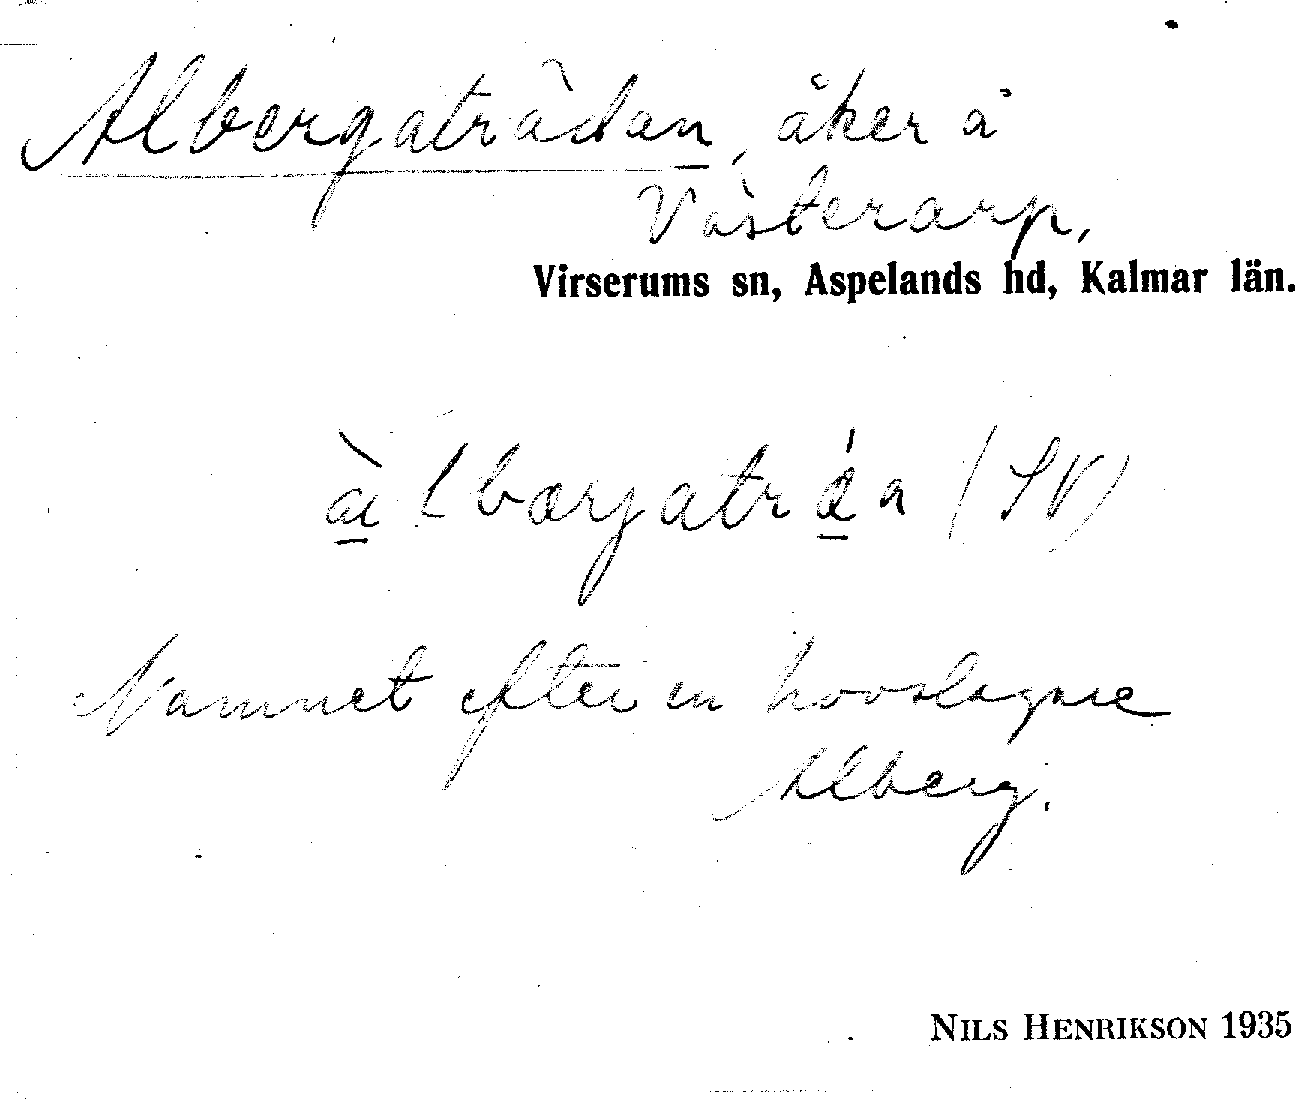 Albergaträdan, åker å
Västerarp,
Virserums sn, Aspelands hd, Kalmar län.
(SV)
Namnet efter en hovslagare
Alberg.
NILS HENRIKSON 1935